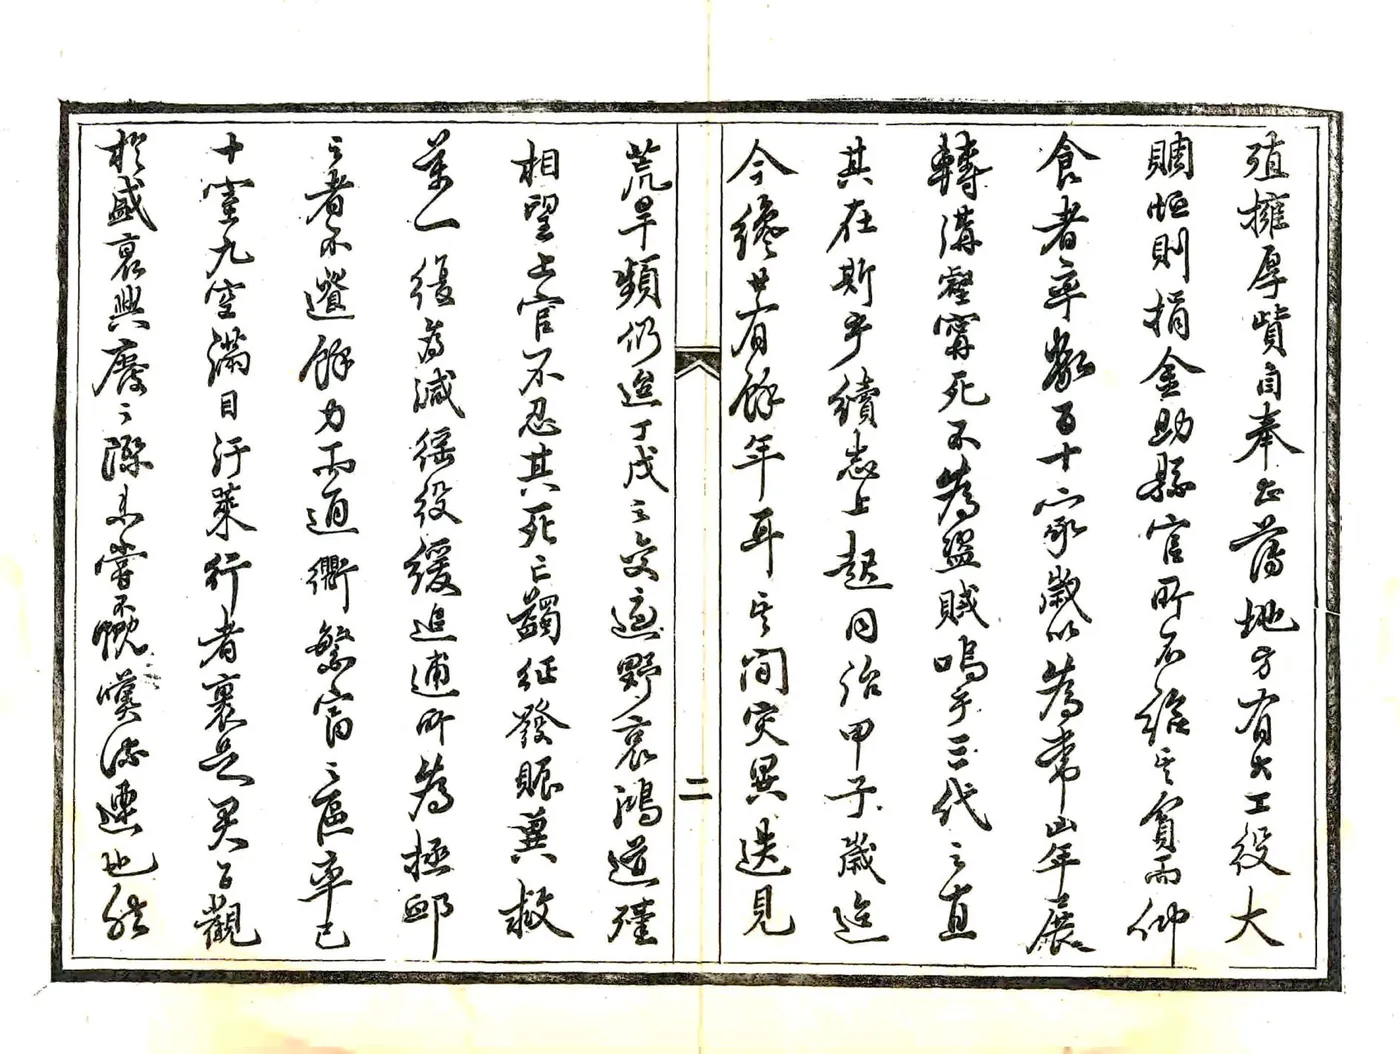 殖擁厚貲自奉止薄地方有大工役大
賙恤則捐金助縣官所不給其貧而仰
食者率數百十家歲以為常山年展
轉溝壑寗死不為盜賊嗚乎三代之直
其在斯乎續志上起同治甲子歲迄
今纔廿有餘年耳其間災異迭見
荒旱頻仍迨丁戊之交遍野哀鴻道殣
相望上官不忍其死亡蠲征發賑冀救
萬一復為減徭役緩追逋所為極卹
之者不遺餘力而通衢繁富之區率已
十室九空滿目汙萊行者裹足君子觀
於盛衰興廢之際未嘗不慨嘆流連也然
二